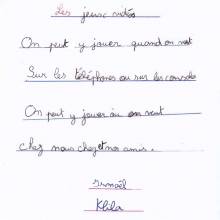 Les jeux vidéos
On peut y jouer quand on veut
Sur les téléphones ou sur les console
On peut y jouer où on veut
chez nous chez et nos amis.
Ismaël
Khila